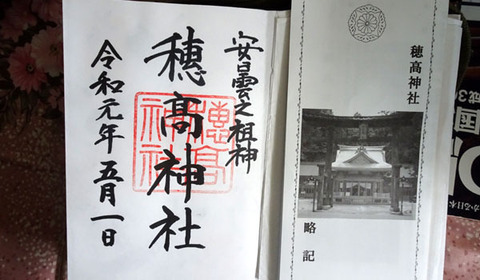 安曇之祖神
穂高神社
令和元年 五月一日
穂高神社
穂高神社
略記